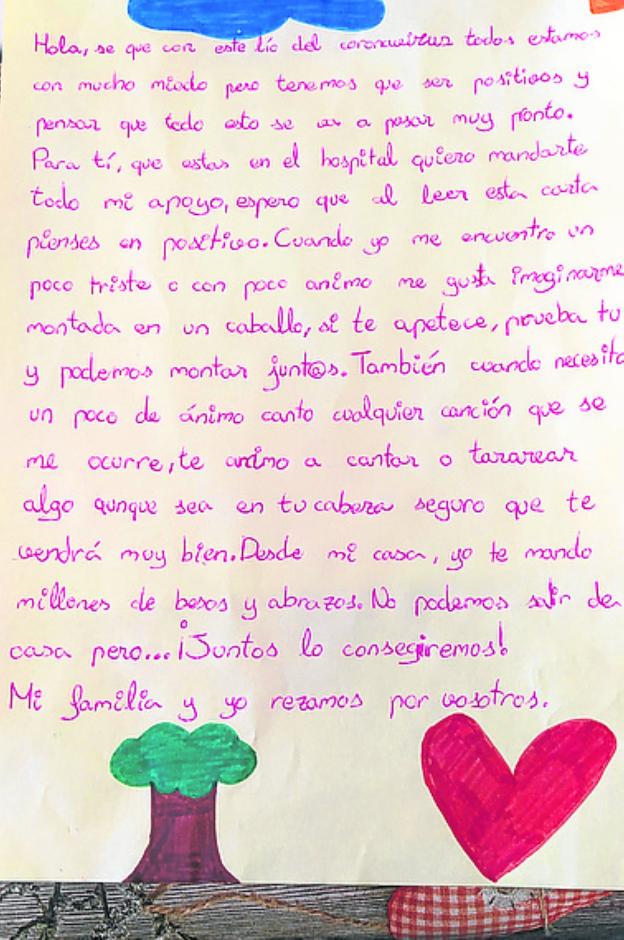 Hola, se que con este lío del coronavirus todos estamos
con mucho miedo pero tenemos que ser positivos y
pensar que todo esto se va a pasar muy pronto.
Para tí, que estas en el hospital quiero mandarte
todo mi apoyo, espero que al leer esta carta
pienses en positivo. Cuando yo me encuentro un
poco triste o con poco animo me gusta imaginarme
montada en un caballo, si te apetece, prueba tu
y podemos montar junt@s. También cuando necesito
un poco de ánimo canto cualquier canción que se
me ocurre, te animo a cantar o tararear
algo aunque sea en tu cabeza seguro que te
vendrá muy bien. Desde mi casa, yo te mando
millones de besos y abrazos. No podemos salir de
casa pero... ¡Juntos lo consegiremos!
Mi familia y yo rezamos por vosotros.